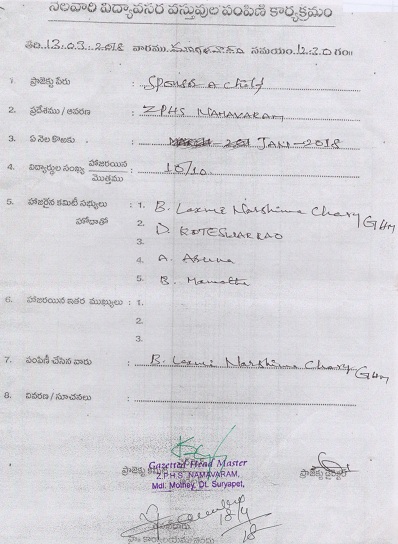 నెలవారి విద్యావసర వస్తువుల పంపిణీ కార్యక్రమం
తేది: 13.03.2018 వారము మంగళవారం సమయం 12:30 గం॥
1. ప్రాజెక్టు పేరు : Sponsor a child
2. ప్రదేశము / ఆవరణ : ZPHS NAMAVARAM
3. ఏ నెల కొఱకు : JAN-2018
4. విద్యార్థుల సంఖ్య హాజరయిన / మొత్తము : 10/10
5. హాజరైన కమిటీ సభ్యులు : 1. B. Laxmi Narshima Chary GHM
హోదాతో 2. D. KOTESWARRAO
3.
4. A. Aruna
5. B. Mamatha
6. హాజరయిన ఇతర ముఖ్యులు : 1.
2.
3.
7. పంపిణీ చేసిన వారు : B. Laxmi Narshima Chary GHM
8. వివరణ / సూచనలు :
ప్రాజెక్టు
Gazetted Head Master
Z.P.H.S. NAMAVARAM,
Mdl. Mothey, Dt. Suryapet,
ప్రాజెక్టు
18/4/18